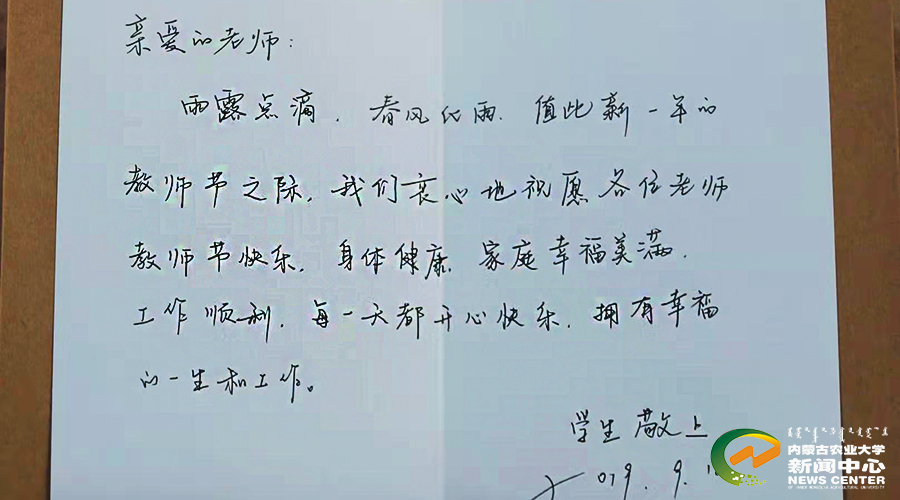 亲爱的老师：
雨露点滴，春风化雨，值此新一年的
教师节之际，我们衷心地祝愿各位老师
教师节快乐，身体健康，家庭幸福美满，
工作顺利，每一天都开心快乐，拥有幸福
的一生和工作。
学生敬上
2019.9.
内蒙古农业大学
新闻中心
NEWS CENTER